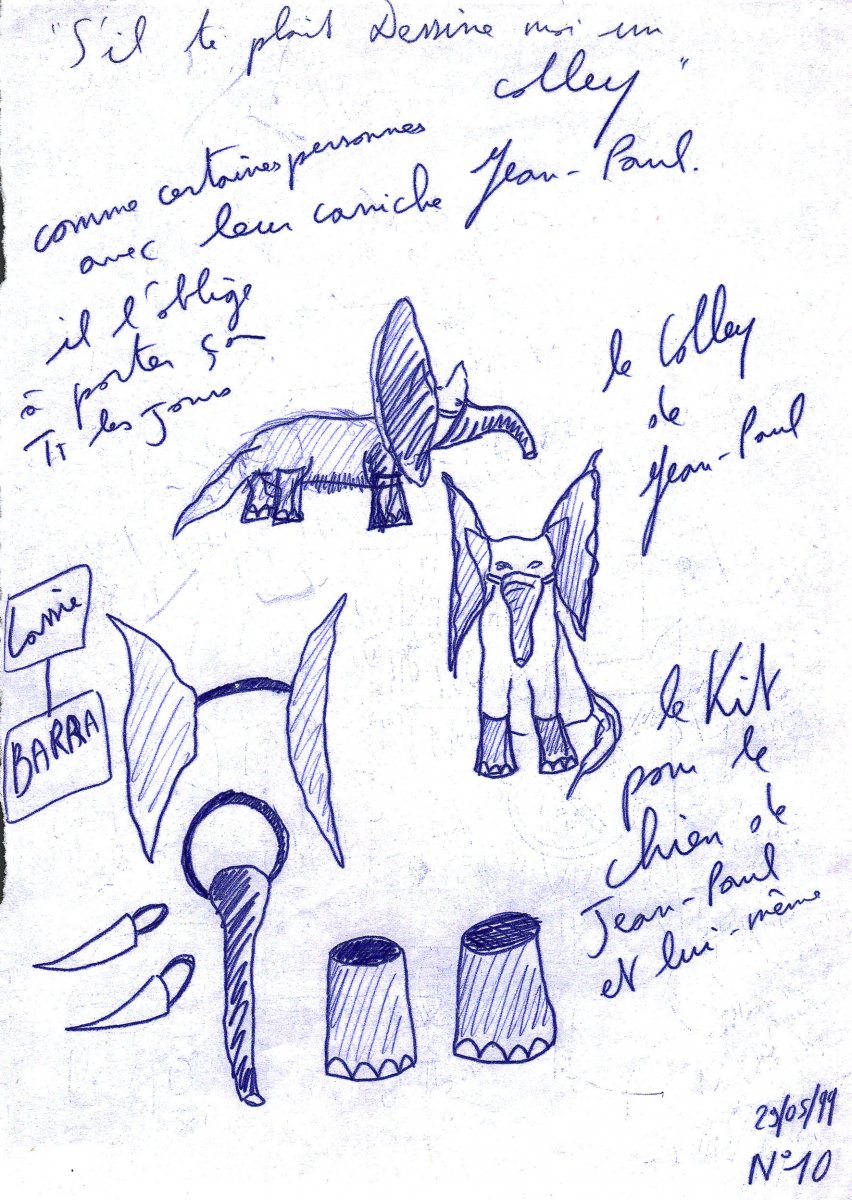 "S'il te plait Dessine moi un
colley"
comme certaines personnes
avec leur caniche Jean-Paul.
il l'oblige
à porter ça
Tt les jours
le Colley
de
Jean-Paul
Lassie
BARRA
le Kit
pour le
chien de
Jean-Paul
et lui-même
29/05/99
N°10